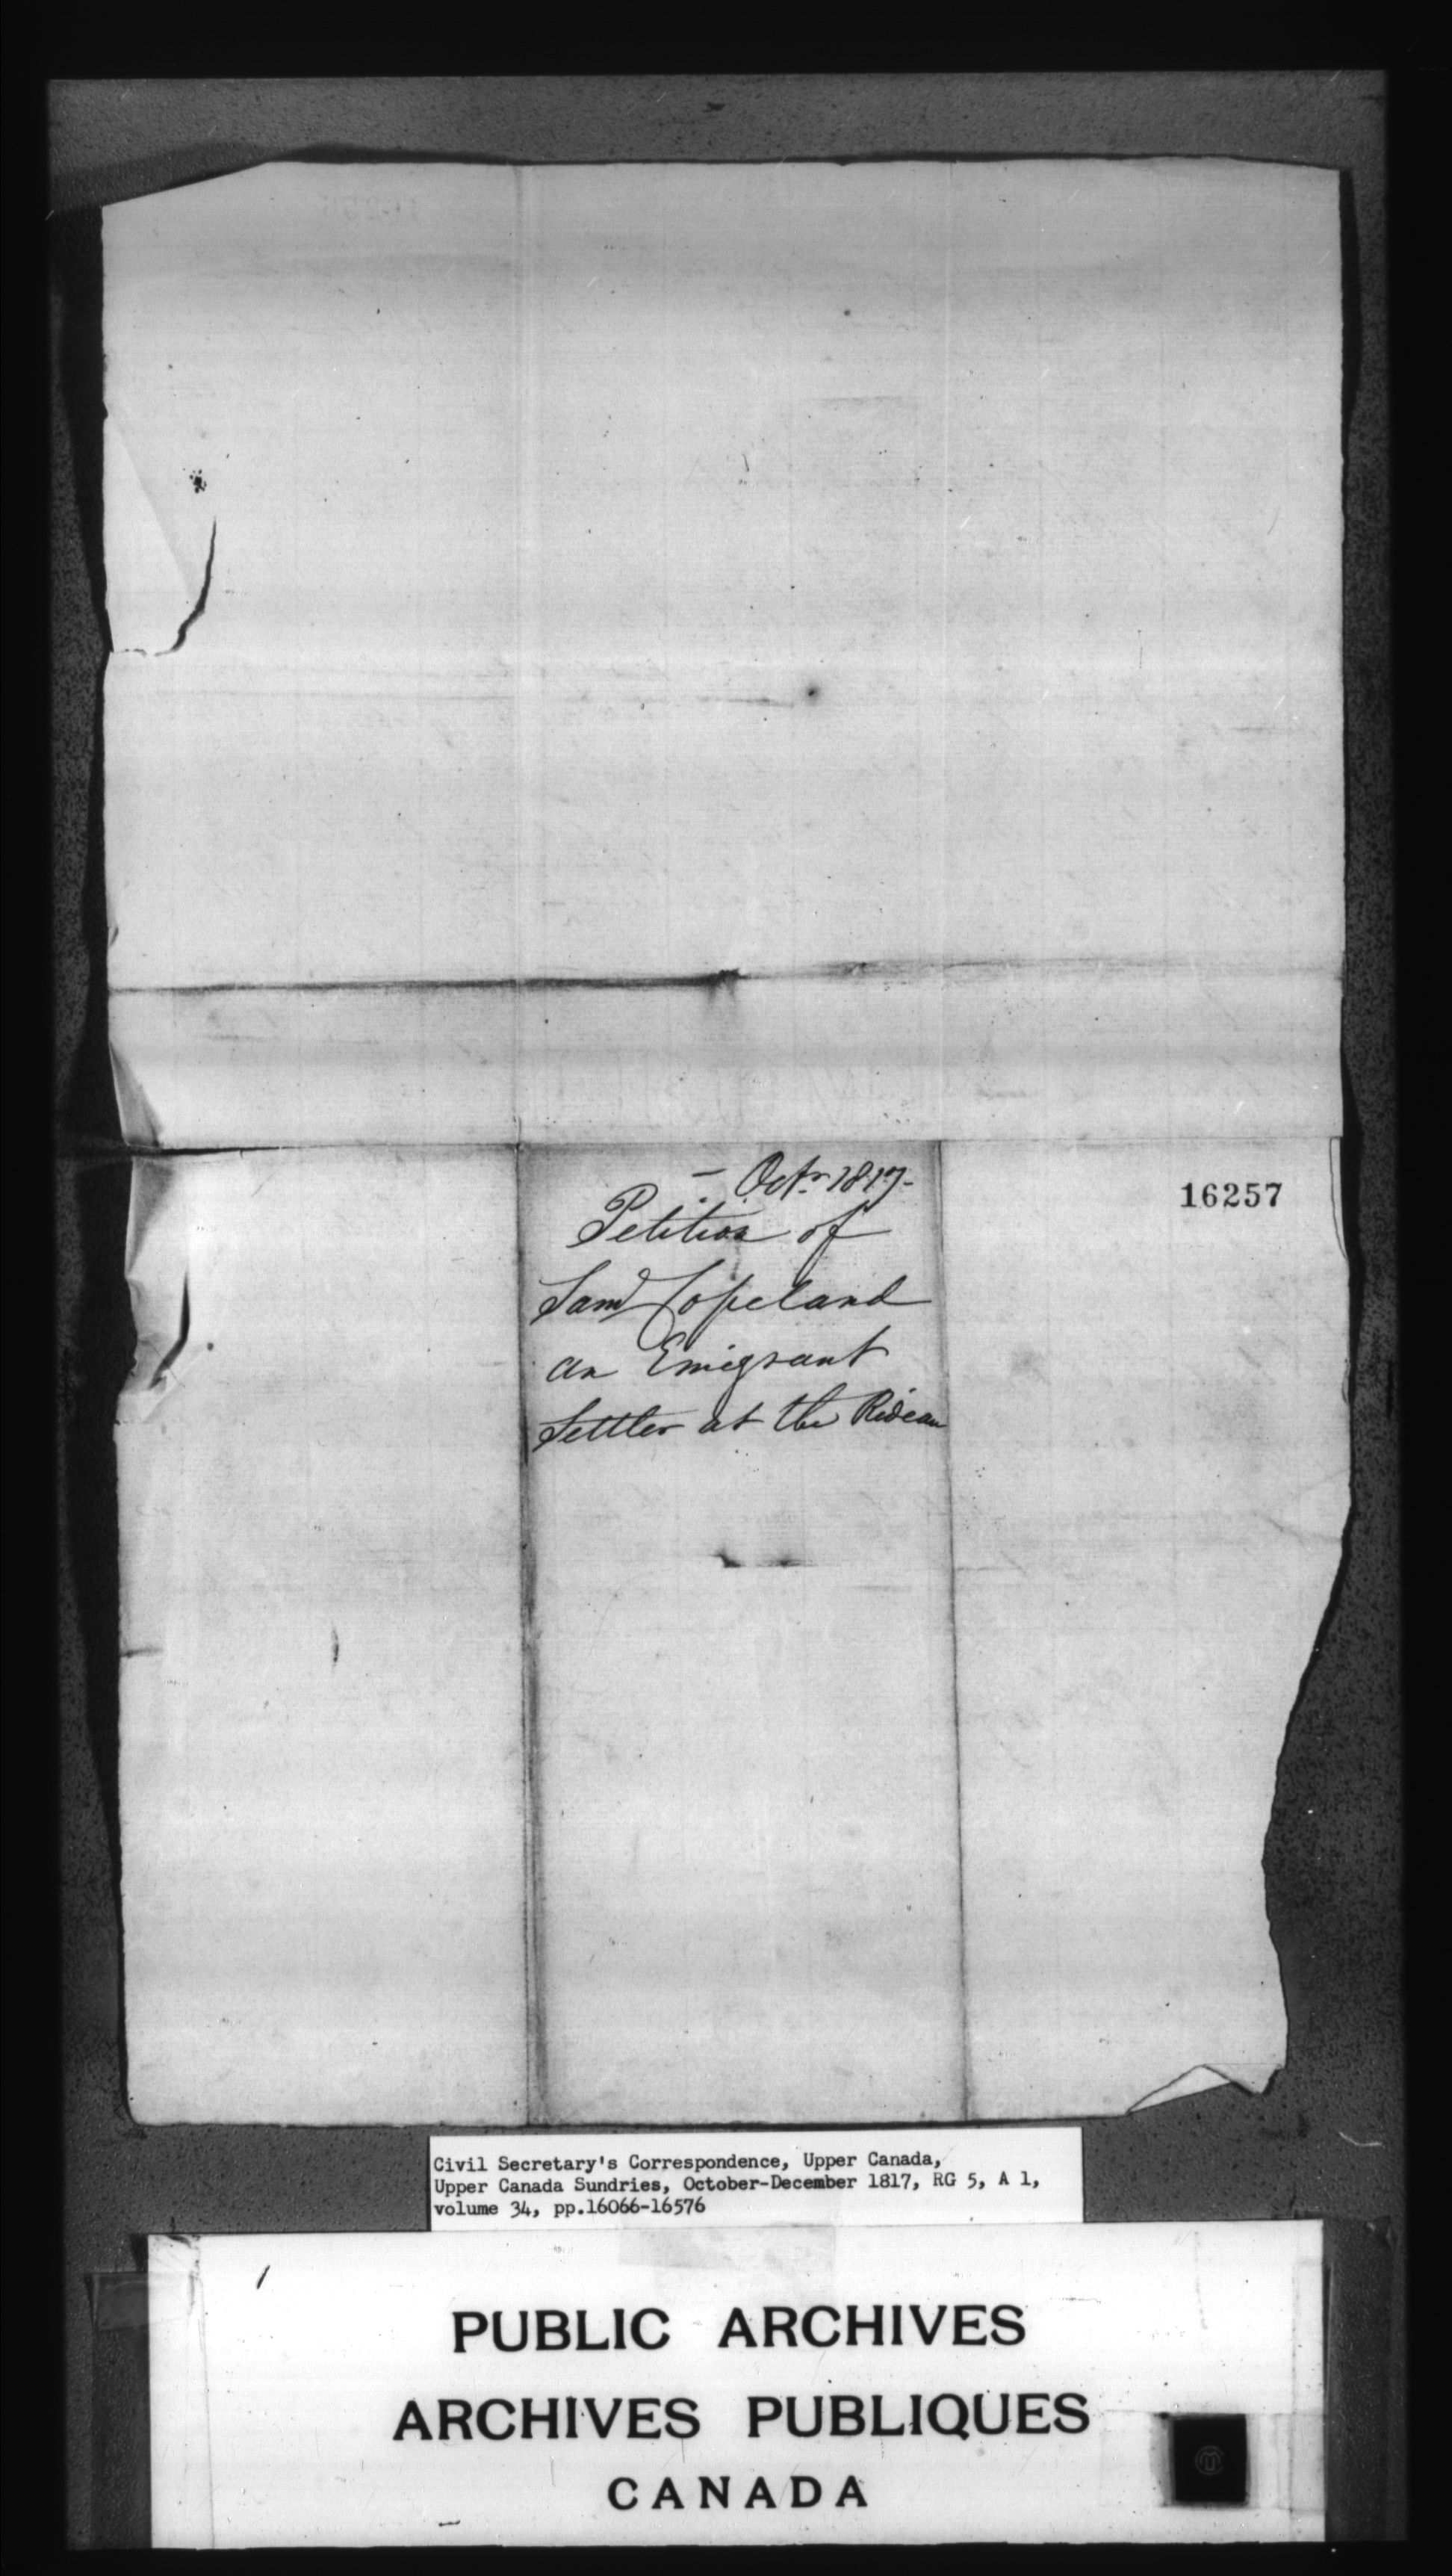 - Octr 1817-
16257
Petition of
Saml Copeland
an Emigrant
Settler at the Rideau
Civil Secretary's Correspondence, Upper Canada,
Upper Canada Sundries, October-December 1817, RG 5, A 1,
volume 34, pp.16066-16576
PUBLIC ARCHIVES
ARCHIVES PUBLIQUES
CANADA